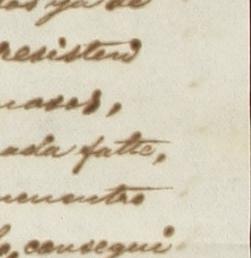 os ya se
resisten
nasos,
ada falte,
ncuentro
lo, consegui